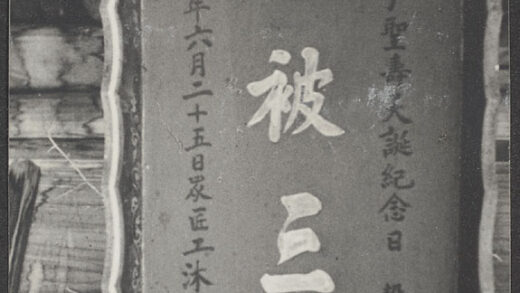 聖壽大誕紀念日
被三
年六月二十五日眾匠工沐